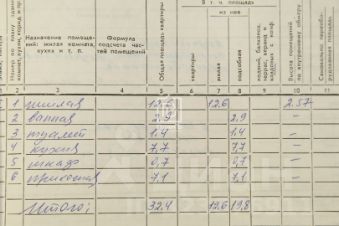 В т. ч. площадь
из нее
Назначение помещений: жилая комната, кухня и т. п.
Формула подсчета частей помещений
Общая площадь квартиры
жилая
подсобная
Высота помещений по внутреннему обмеру
2 3 4 5 6 7 8 9 10 11
1 жилая 12,6 12,6 2.57
2 ванная 2,9 2,9 –
3 туалет 1.4 1.4 –
4 кухня 7,7 7,7 –
5 шкаф 0,7 0,7 –
6 прихожая 7,1 7,1 –
Итого: 32.4 12.6 19,8